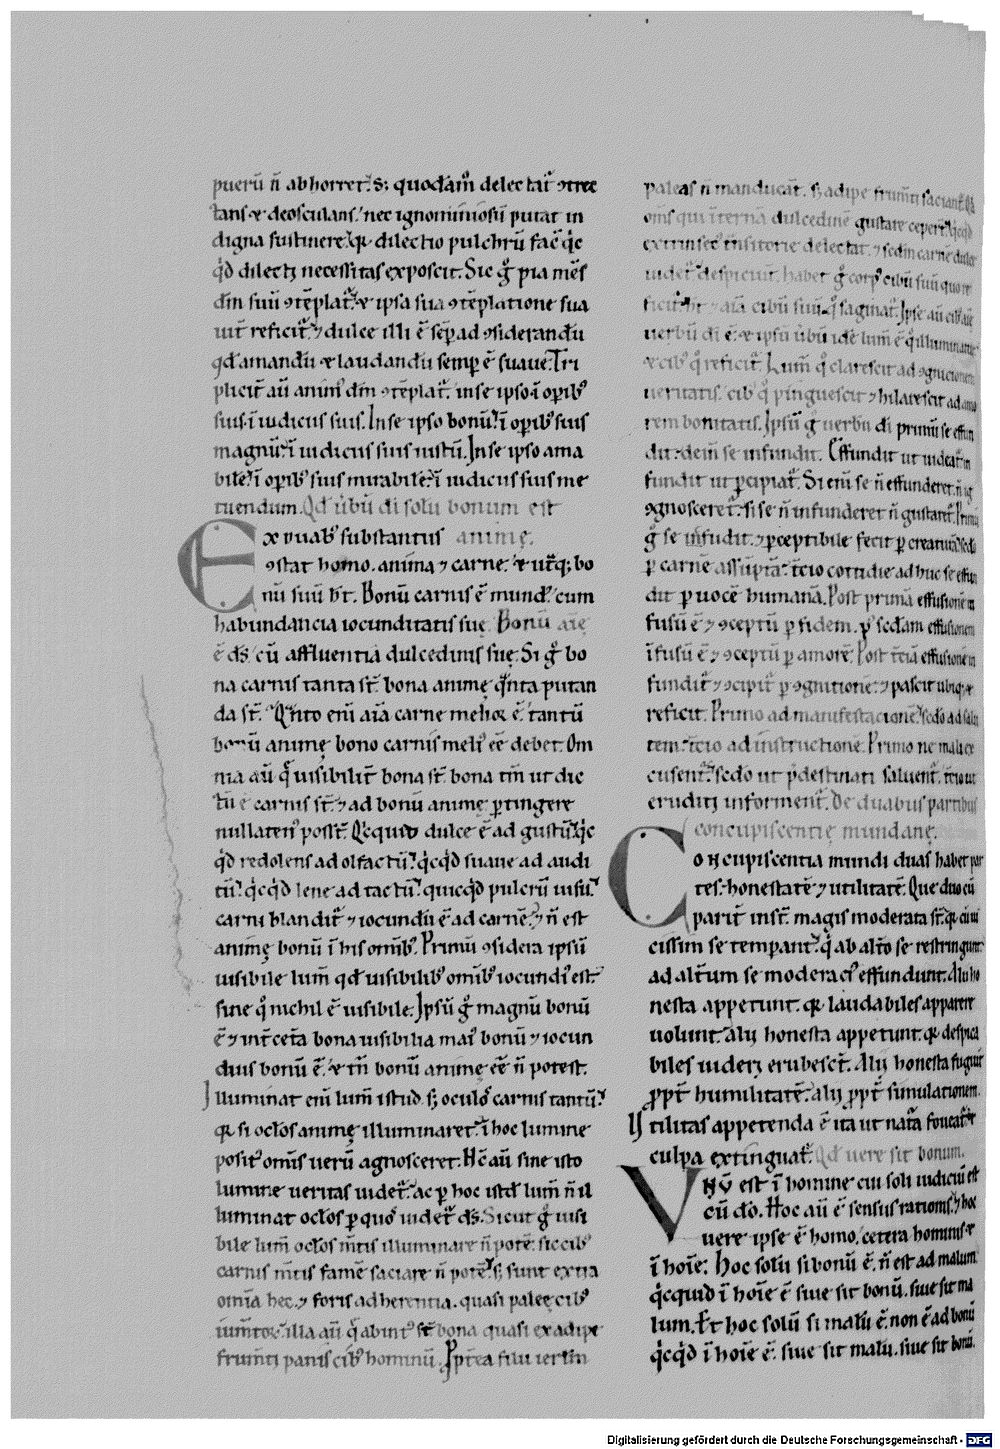 puerū n̄ abhorret. S; quodām delectat᷑ ꝯtrec
tans ⁊ deosculans. nec ignominiosū putat in
digna sustinere. qꝛ dilectio pulchrū fac̄ qc̣
qd̄ dilecti necessitas exposcit. Sic g̊ pia mēs
dm̄ suū ꝯtēplat᷑. ⁊ ipsa sua ꝯtēplatione sua
uit᷑ reficit᷑. ⁊ dulce illi ē sēp ad ꝯsiderandū
qd̄ amandū ⁊ laudandū semꝑ ē suaue. Tri
plicit᷑ aū anim᷒ dm̄ ꝯtēplat᷑. in se ipso. ī opib᷒
suis. ī iudiciis suis. In se ipso bonū. ī opib᷒ suis
magnū. ī iudiciis suis iustū. In se ipso ama
bilē. ī opib᷒ suis mirabilē. ī iudiciis suis me
tuendum. Qd̄ ūbū di solū bonum est
Ex duab᷒ substantiis anime.
ꝯstat homo. anima ⁊ carne. ⁊ utq; bo
nū suū ht̄. Bonū carnis ē mund᷒ cum
habundancia iocunditatis sue. Bonū aīe
ē ds̄ cū affluentia dulcedinis sue. Si g̊ bo
na carnis tanta st̄. bona anime qnta putan
da st̄. Qnto enī aīa carne melior ē. tantū
bonū anime bono carnis meli᷒ eē debet. Om
nia aū q̄ uisibilit᷑ bona st̄. bona tm̄ ut dic
tū ē carnis st̄. ⁊ ad bonū anime ptingere
nullaten᷒ posst̄. Qcquid dulce ē ad gustū. qc
qd̄ redolens ad olfactū. qcqd̄ suaue ad audi
tū. qcqd̄ lene ad tactū. quicqd̄ pulcrū uisū.
carni blandit᷑ ⁊ iocundū ē ad carnē. ⁊ n̄ est
anime bonū ī his omīb᷒. Primū ꝯsidera ipsū
uisibile lum̄ qd̄ uisibilib᷒ omīb᷒ iocundi᷒ est.
sine q̊ nichil ē uisibile. Ipsū g̊ magnū bonū
ē ⁊ int᷑ cet᷑a bona uisibilia mai᷒ bonū ⁊ iocun
dius bonū ē. ⁊ tn̄ bonū anime eē n̄ potest.
Illuminat enī lum̄ istud. s; oculo᷒ carnis tantū.
qꝛ si oclos anime illuminaret. ī hoc lumine
posit᷒ omīs uerū agnosceret. Hc̄ aū sine isto
lumine ueritas uidet᷑. ac ꝑ hoc istd̄ lum̄ n̄ il
luminat oclos ꝑ quos uidet᷑ ds̄. Sicut g̊ uisi
bile lum̄ oclos mtis illuminare n̄ potē. sic cib᷒
carnis mtis famē saciare n̄ potē. s; sunt extra
omīa hec. ⁊ foris adherentia. quasi palee cib᷒
iumtoꝝ. illa aū q̄ abint᷒ st̄ bona quasi ex adipe
frumti panis cib᷒ hominū. Pptea filii ierlm
paleas n̄ manducāt. s; adipe frumti saciant᷑. Qa
oms qui īternā dulcedinē gustare ceperīt. qcqd
extrinsec᷒ tnsitorie delectat. ⁊ scdm carnē dulce
uidet᷑. despiciunt. habet g̊ corp᷒ cibū suū quo re
ficit᷑. ht̄ ⁊ aīa cibū suū q̊ saginat᷑. Ipse aū cib᷒ aīe
uerbū di ē. ⁊ ipsū ūbū idē lum̄ ē q̊ illuminat᷑.
⁊ cib᷒ q̊ reficit᷑. Lum̄ q̊ clarescit ad ꝯgnicionem
ueritatis. cib᷒ q̊ pinguescit ⁊ hilarescit ad amo
rem bonitatis. Ipsū g̊ uerbū di primū se effun
dit. dein se infundit. Effundit ut uideat᷑. in
fundit ut pcipiat᷑. Si enī se n̄ effunderet. n̄ ag
ꝯgnosceret᷑. si se n̄ infunderet n̄ gustaret᷑. Primū
g̊ se infudit. ⁊ pceptibile fecit ꝑ creaturā. scdo
ꝑ carnē assūptā. tcio cottidie ad huc se effun
dit ꝑ uocē humanā. Post primā effusionē n̄
fusū ē ⁊ ꝯceptū ꝑ fidem. p᷒ scdam effusionem
īfusū ē ⁊ ꝯceptū ꝑ amorē. Post tciā effusionē in
fundit᷑ ⁊ ꝯcipit᷑ ꝑ ꝯgnitionē. ⁊ pascit ubiq; ⁊
reficit. Primo ad manifestacionē. scdo ad salu
tem. tcio ad instructionē. Primo ne mali ex
cusent᷑. scdo ut pdestinati saluent᷑. tcio ut
eruditi informent᷑. De duabus partibus
concupiscentie mundane.
Concupiscentia mundi duas habet par
tes. honestatē ⁊ utilitatē. Que duo cū
parit᷑ inst̄. magis moderata st̄. qꝛ cū ui
cissim se temperant. q̄ ab alto se restringunt᷑
ad altum se moderaci᷒ effundunt. Alii ho
nesta appetunt. qꝛ laudabiles apparere
uolunt. Alii honesta appetunt. qꝛ despica
biles uideri erubescīt. Alii honesta fugiūt
ppt᷑ humilitatē. alii ppt᷑ simulationem.
Utilitas appetenda ē ita ut nat᷑a foueat᷑ ⁊
culpa extinguat᷑. Qd uere sit bonum.
Unū est ī homine cui soli iudiciū est
cū do. Hoc aū ē sensus rationis. ⁊ hoc
uere ipse ē homo. cetera hominis ⁊
ī hoīe. Hoc solū si bonū ē. n̄ est ad malum
qcquid ī hoīe ē siue sit bonū. siue sit ma
lum. Et hoc solū si malū ē. non ē ad bonū
qcqd̄ ī hoīe ē. siue sit malū. siue sit bonū.
Digitalisierung gefördert durch die Deutsche Forschungsgemeinschaft - DFG